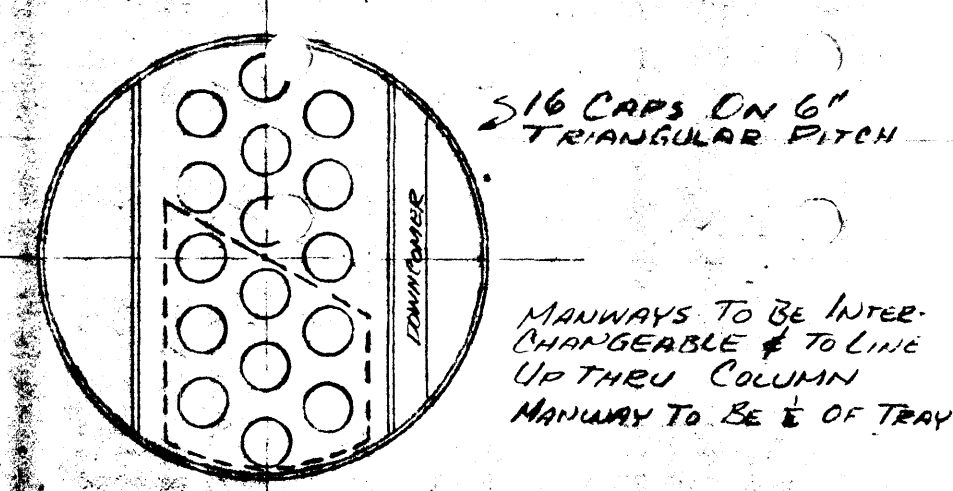 16 CAPS ON 6"
TRIANGULAR PITCH
DOWNCOMER
MANWAYS TO BE INTER-
CHANGEABLE & TO LINE
UP THRU COLUMN
MANWAY TO BE ℄ OF TRAY